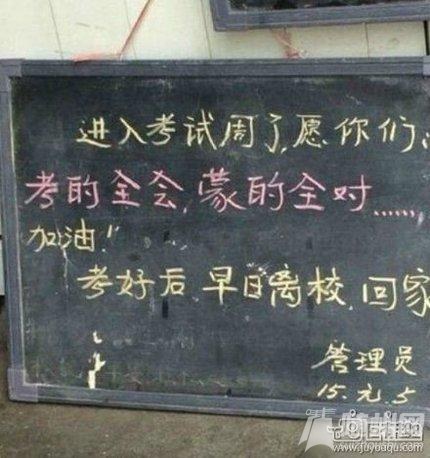 进入考试周了,愿你们
考的全会,蒙的全对……,
加油!
考好后早日离校,回家
管理员
15.元.5
www.juyouqu.com